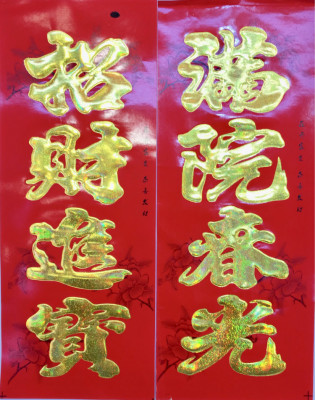 招財進寶
滿院春光